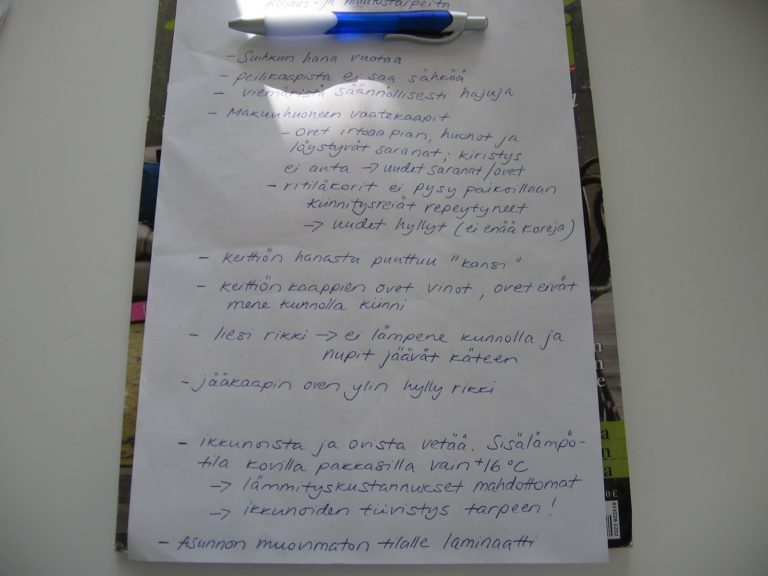 korjaus- ja muutostarpeita
- Suihkun hana vuotaa
- peilikaapista ei saa sähköä
- viemäristä säännöllisesti hajuja
- Makuuhuoneen vaatekaapit
- ovet irtoaapian, huonot ja
löystyvät saranat; kiristys
ei auta → uudet saranat/ovet
- ritiläkorit ei pysy paikoillaan
kiinnitysreiät repeytyneet
→ uudet hyllyt (ei enää koreja)
- keittiön hanasta puuttuu "kansi"
- keittiön kaappien ovet vinot, ovet eivät
mene kunnolla kiinni
- liesi rikki → ei lämpene kunnolla ja
nupit jäävät käteen
- jääkaapin oven ylin hylly rikki
- ikkunoista ja ovista vetää. Sisälämpö-
tila kovilla pakkasilla vain +16 °C
→ lämmityskustannukset mahdottomat
→ ikkunoiden tiivistys tarpeen!
- Asunnon muovimaton tilalle laminaatti